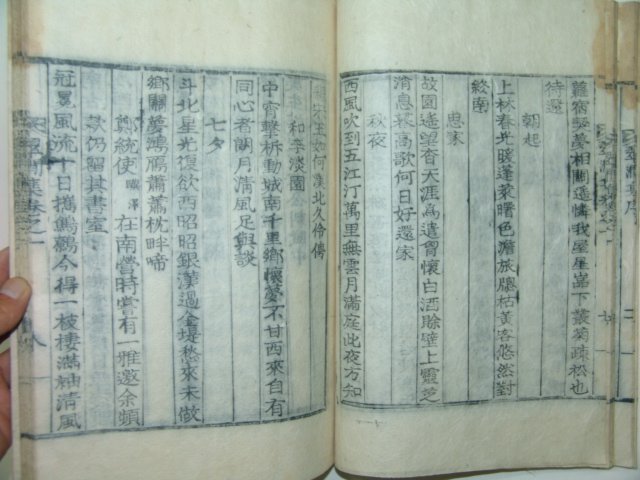 舊宿詩夢相關遥憐我屋星嵓下叢菊疎松也
待還
朝起
上林春光暖蓬萊曙色澹旅牕枯黃客悠然對
終南
思家
故園遥望杳天涯爲遣覊懷白酒賖壁上靈芝
消息暮高歌何日好還家
秋夜
西風吹到五江汀萬里無雲月滿庭此夜方知
宋玉如何漢北久伶俜
和李淡園
中宵擊柝動城南千里鄉懷夢不甘西來自有
同心者朗月清風足與談
七夕
斗北星光復欲西昭昭銀漢過金堤愁來未做
鄉關夢鴻鴈蕭蕭枕畔啼
鄭統使 在南營時嘗有一雅邀余頻
欸仍留其書室
冠冕風流十日攜鷦鷯今得一枝棲滿袖清風